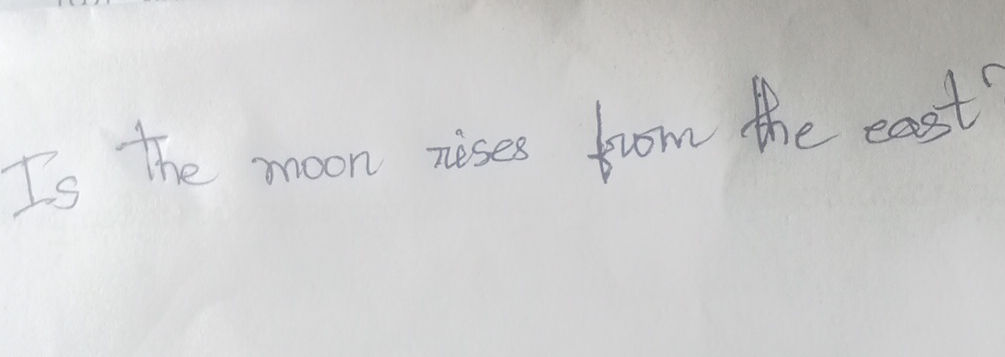 Is the moon rises from the east?